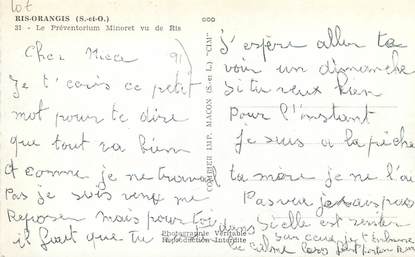 lot
RIS-ORANGIS (S.-et-O.)
31 - Le Préventorium Minoret vu de Ris
91
Cher
Je t'écris ce petit
mot pour te dire
que tout va bien
et comme je ne travail
Pas je suis venu me
Reposer mais pour toi
il faut que tu
COMBIER IMP. MACON (S.-et-L.) "CIM"
Photographie Véritable
Reproduction Interdite
J'espère aller te
voir un dimanche
si tu veux bien
Pour l'instant
Je suis a la pêche
ta mère je ne l'ai
Pas vue je sais pas
si elle est
sur ceux je t'embrasse